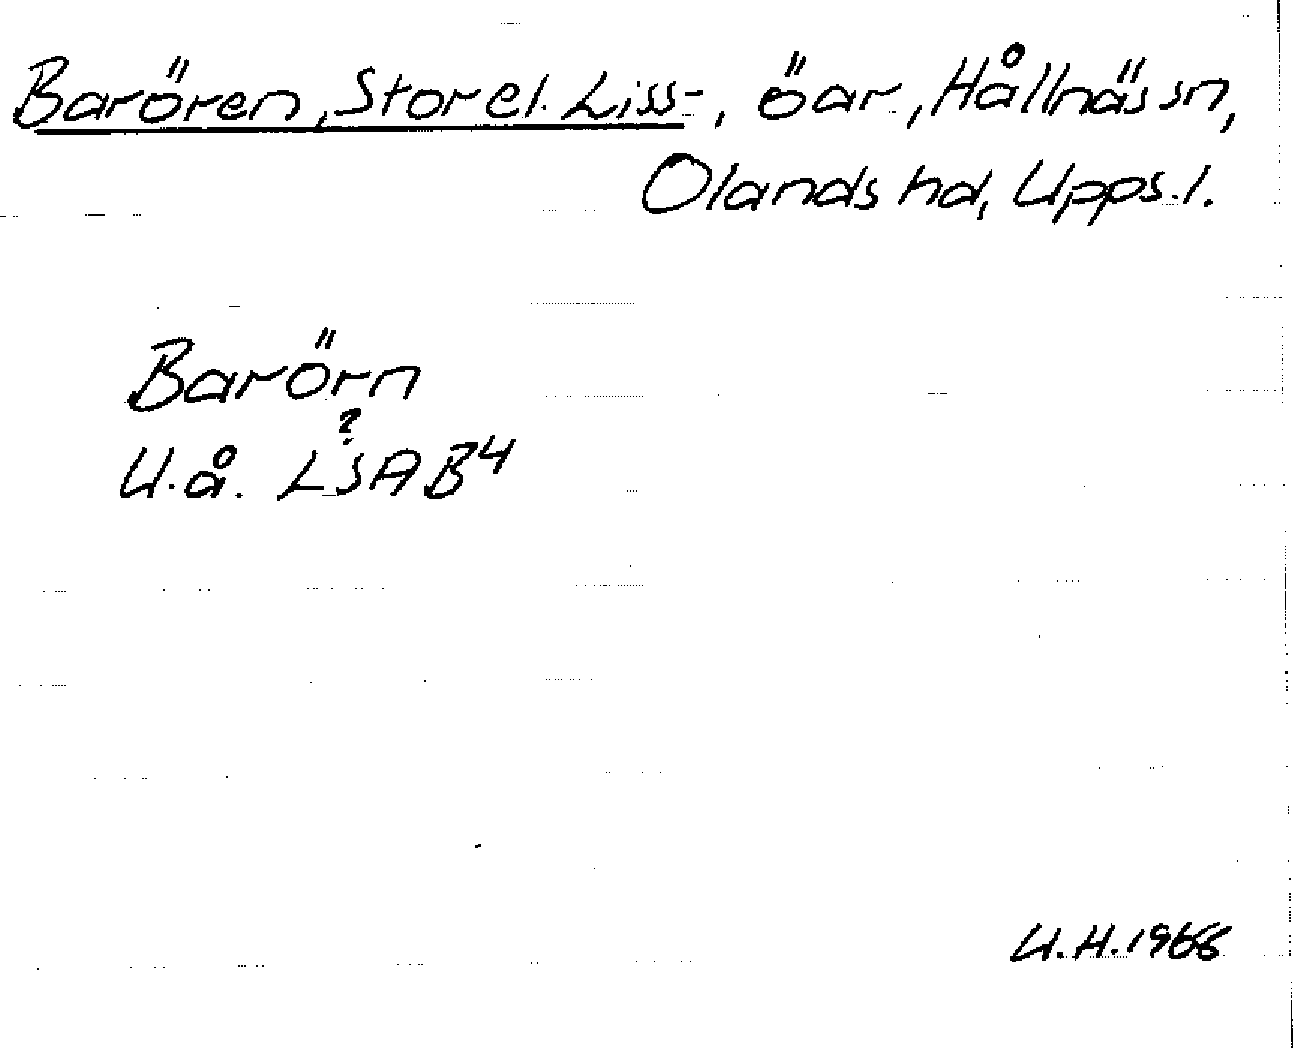 Barören, Stor el. Liss-, öar, Hållnäs sn,
Olands hd, Upps. l.
Barörn
?
U.å. LSA B4
U.H. 1966